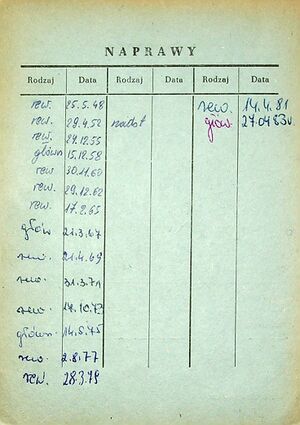 NAPRAWY
Rodzaj Data Rodzaj Data Rodzaj Data
rew. 25.5.48 rew. 14.4.81
rew. 29.4.52 głów. 27.04.83
rew. 27.12.55
główn 15.12.58
rew. 30.11.60
rew. 29.12.62
rew. 17.2.65
głów 21.3.67
rew. 21.4.69
rew. 31.3.71
rew. 14.10.73
główn. 14.5.75
rew. 2.8.77
rew. 28.3.79